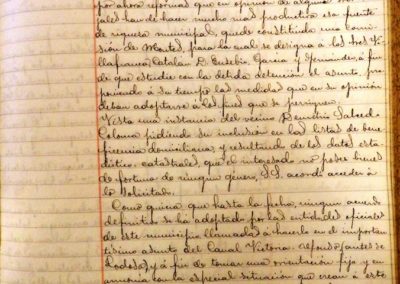 por ahora reformas que en opinión de algunos con-
jales han de hacer mucho más productiva esa fuente
de riqueza municipal, quede constituida una comi-
sión de Montes, para la cual se designa á los Sres Vi-
llafranca, Catalan D. Eusebio, Garcia y Fernández, á fin
de que estudie con la debida detención el asunto, pro-
poniendo á su tiempo las medidas que en su opinión
deban adoptarse á los fines que se persiguen.
Vista una instancia del vecino Demetrio Salcedo
Coloma pidiendo su inclusión en las listas de bene-
ficencia domiciliaria, y resultando de los datos esta-
dístico-catastrales, que el interesado no posee bienes
de fortuna de ningun género, S.S. acordó acceder á
lo solicitado.
Como quiera que hasta la fecha, ningun acuerdo
definitivo se ha adoptado por las entidades oficiales
de este municipio llamadas á hacerlo en el importan-
tísimo asunto del Canal Victoria-Alfonso, antes de
Lodosa, y á fin de tomar una orientación fija y en
armonía con la especial situación que crean á este